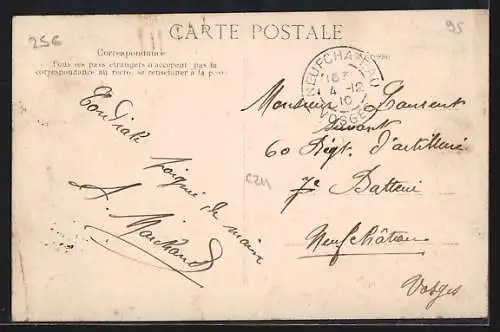 256
95
CARTE POSTALE
Correspondance
Tous les pays étrangers n'acceptent pas la
correspondance au recto, se renseigner à la poste
NEUFCHATEAU
4 -12
10
VOSGES
Monsieur Laurent
Servant
60 Régt. d'artillerie
7e Batterie
Neufchâteau
Vosges
Cordiale
poignée de main
A. Marchand